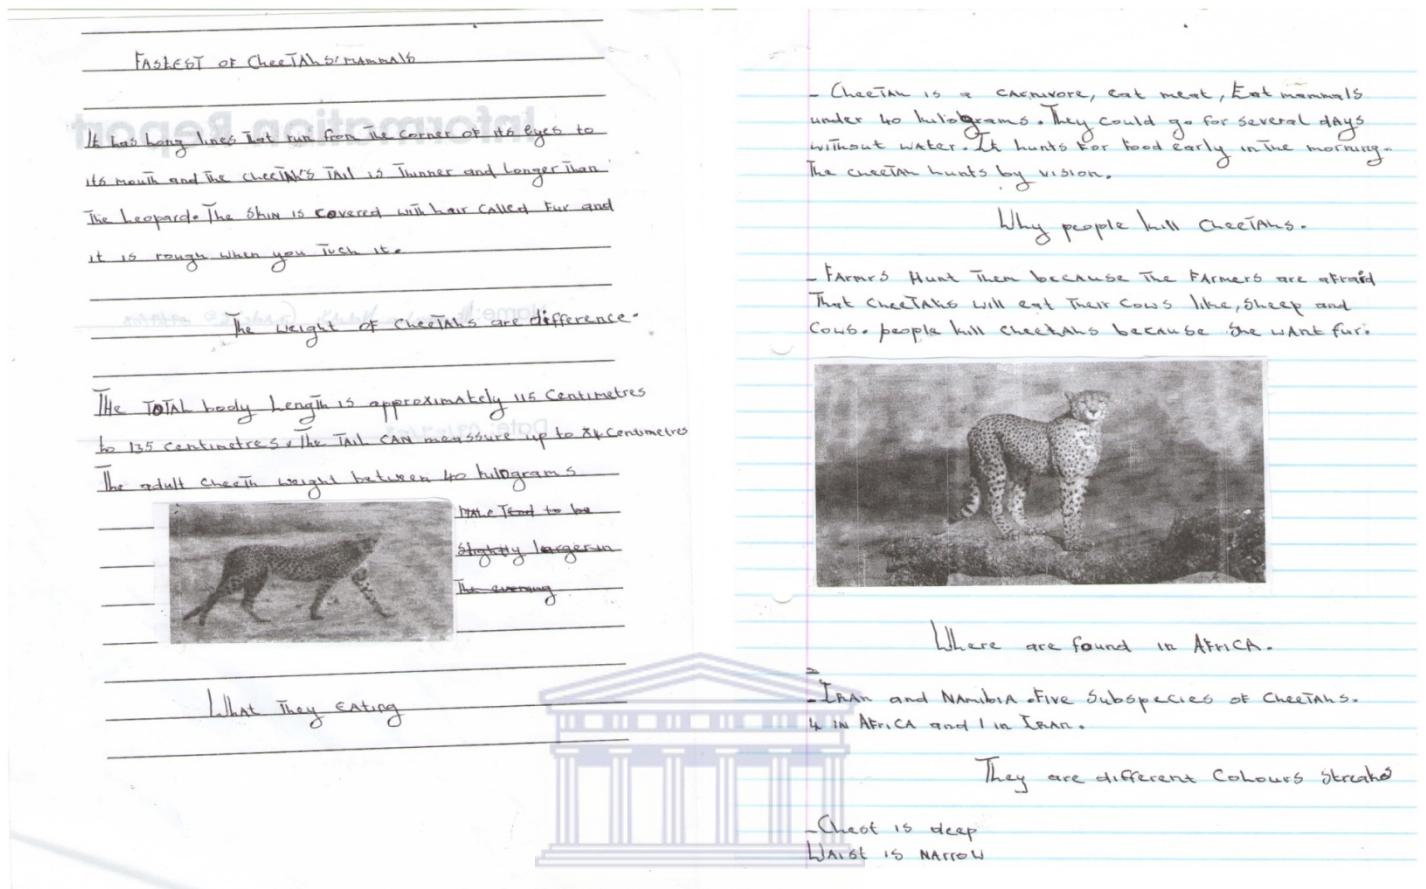 FASTEST OF CheeTAhs MAMMALS
It has Long lines That run from The corner of its eyes to
its mouth and The CheeTAh's TAIL is Thinner and Longer Than
The Leopard. The Skin is covered with hair called Fur and
it is rough when you Tuch it.
The weight of CheeTAhs are difference.
THe TOTAL body Length is approximately 115 Centimetres
to 135 centimetres. The TAIL CAN meassure up to 84 Centimetres
The adult Cheeth weight between 40 kilograms
Male Tend to be
slightly larger in
The evening
What They EATing
- CheeTAh is a CARnivore, eat meat, Eat mammals
under 40 kilograms. They could go for several dAys
without water. It hunts For Food early in The morning.
The cheeTAh hunts by vision.
Why people kill CheeTAhs.
- FArmrs Hunt Them because The FArmers are afraid
That CheeTAhs will eat Their cows like, sheep and
cows. people kill cheetAhs because She wAnt fur.
Where are found in AFricA.
- IRAn and NAmibiA. Five Subspecies of CheeTAhs.
4 in AfricA and 1 in IRAn.
They are different Colours Streaks
- Chest is deep
WAist is NArroW
Information Report
Name:
Date: